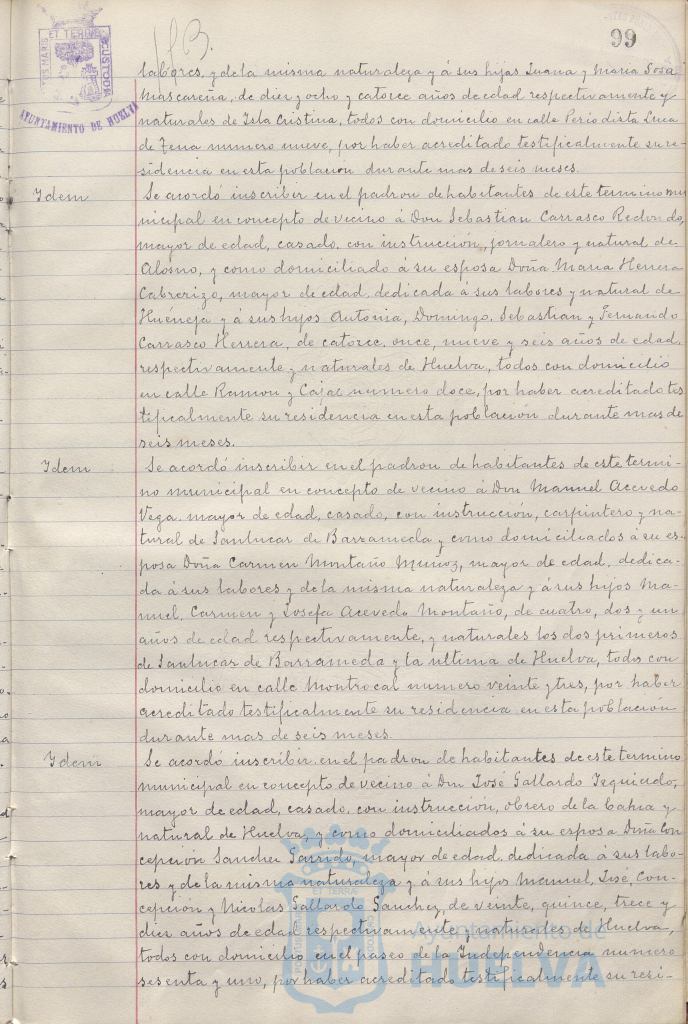 99
labores, y de la misma naturaleza y á sus hijas Juana y Maria Sosa
Mascareña, de diez y ocho y catorce años de edad respectivamente y
naturales de Isla Cristina, todos con domicilio en calle Periodista Luca
de Tena numero nueve, por haber acreditado testificalmente su re-
sidencia en esta población durante mas de seis meses.
Idem
Se acordó inscribir en el padron de habitantes de este termino mu
nicipal en concepto de vecino á Don Sebastian Carrasco Redondo,
mayor de edad, casado, con instrucción, jornalero y natural de
Alosno, y como domiciliado á su esposa Doña Maria Herrera
Cabrerizo, mayor de edad, dedicada á sus labores y natural de
Huéneja y á sus hijos Antonia, Domingo, Sebastian y Fernando
Carrasco Herrera, de catorce, once, nueve y seis años de edad,
respectivamente y naturales de Huelva, todos con domicilio
en calle Ramon y Cajal numero doce, por haber acreditado tes
tificalmente su residencia en esta población durante mas de
seis meses.
Idem
Se acordó inscribir en el padron de habitantes de este termi-
no municipal en concepto de vecino á Don Manuel Acevedo
Vega, mayor de edad, casado, con instrucción, carpintero y na-
tural de Sanlucar de Barrameda y como domiciliados á su es-
posa Doña Carmen Montaño Muñoz, mayor de edad, dedica-
da á sus labores y de la misma naturaleza y á sus hijos Ma-
nuel, Carmen y Josefa Acevedo Montaño, de cuatro, dos y un
años de edad respectivamente, y naturales los dos primeros
de Sanlucar de Barrameda y la ultima de Huelva, todos con
domicilio en calle Montrocal numero veinte y tres, por haber
acreditado testificalmente su residencia en esta población
durante mas de seis meses.
Idem
Se acordó inscribir en el padron de habitantes de este termino
municipal en concepto de vecino á Don José Gallardo Izquierdo,
mayor de edad, casado, con instrucción, obrero de la bahia y
natural de Huelva, y como domiciliados á su esposa Doña Con
cepción Sanchez Garrido, mayor de edad, dedicada á sus labo-
res y de la misma naturaleza y á sus hijos Manuel, José, Con-
cepción y Nicolas Gallardo Sanchez, de veinte, quince, trece y
diez años de edad respectivamente y naturales de Huelva,
todos con domicilio en el paseo de la Independencia numero
sesenta y uno, por haber acreditado testificalmente su resi-
AYUNTAMIENTO DE HUELVA
Ayuntamiento de
HUELVA